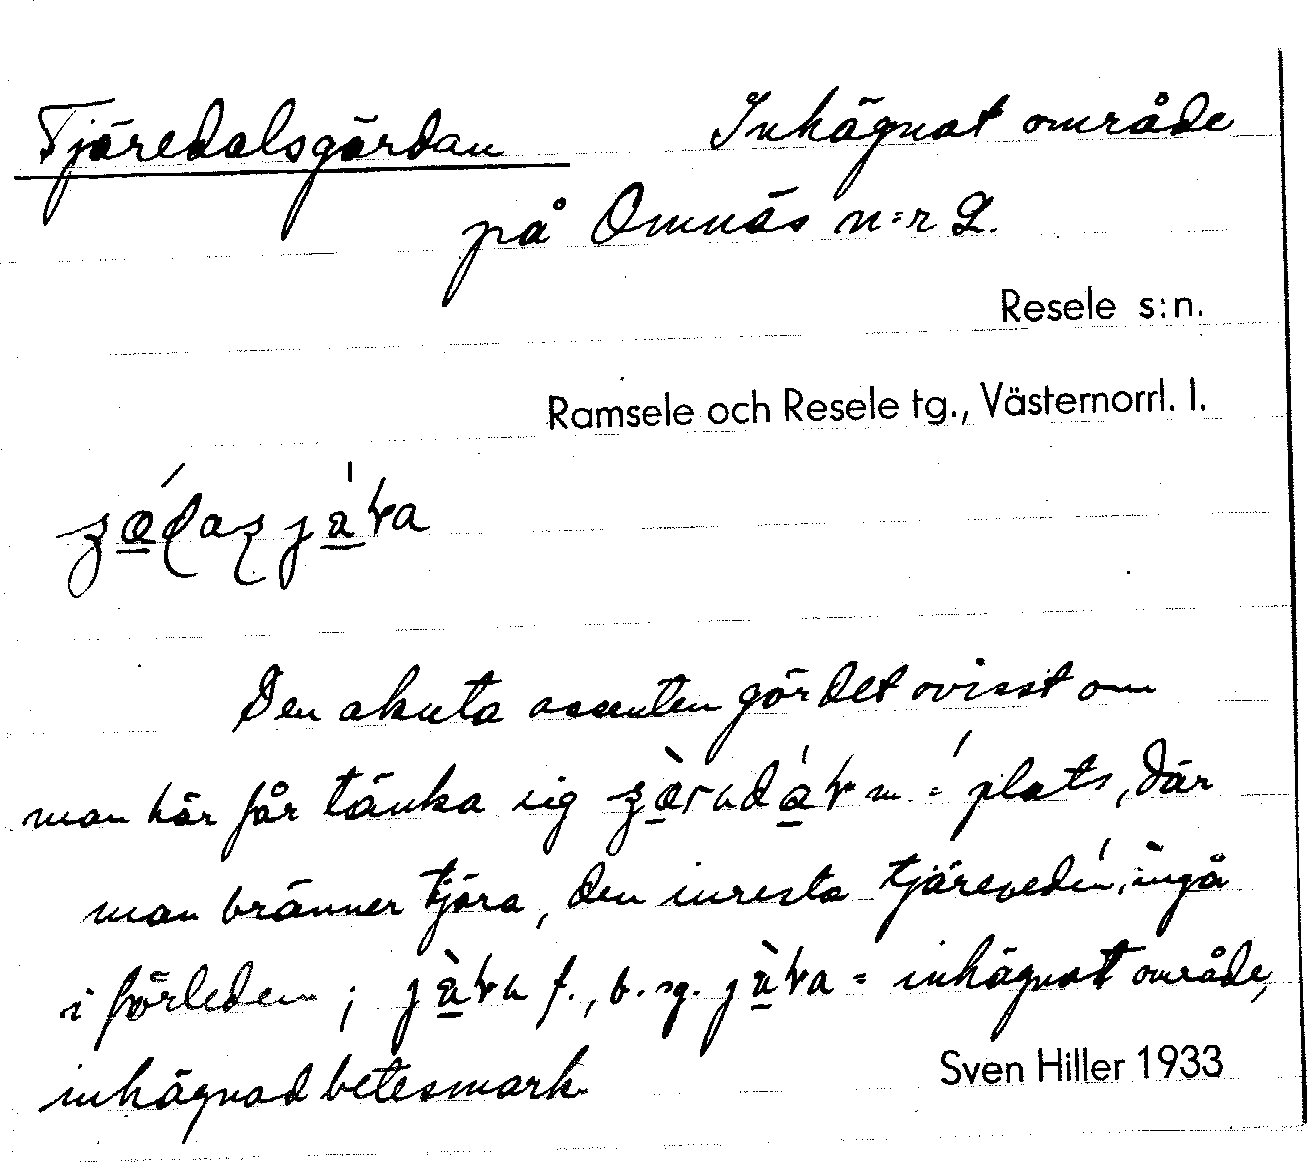 Tjäredalsgärdan Inhägnat område
på Omnäs n:r 2.
Resele s:n.
Ramsele och Resele tg., Västernorrl. l.
Den akuta accenten gör det ovisst om
man här får tänka sig = plats, där
man bränner tjära, den inresta tjäreveden, ingå
i förleden; f., b. sg. = inhägnat område,
inhägnad betesmark.
Sven Hiller 1933